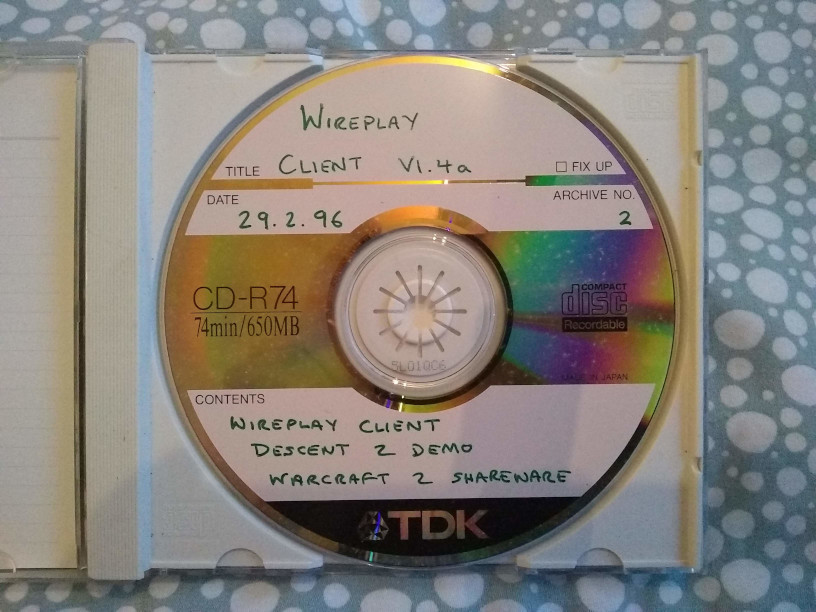 WIREPLAY
TITLE CLIENT V1.4a □ FIX UP
DATE ARCHIVE NO.
29.2.96 2
CD-R74
74min/650MB
COMPACT
disc
Recordable
5L01QC6
MADE IN JAPAN
CONTENTS
WIREPLAY CLIENT
DESCENT 2 DEMO
WARCRAFT 2 SHAREWARE
TDK